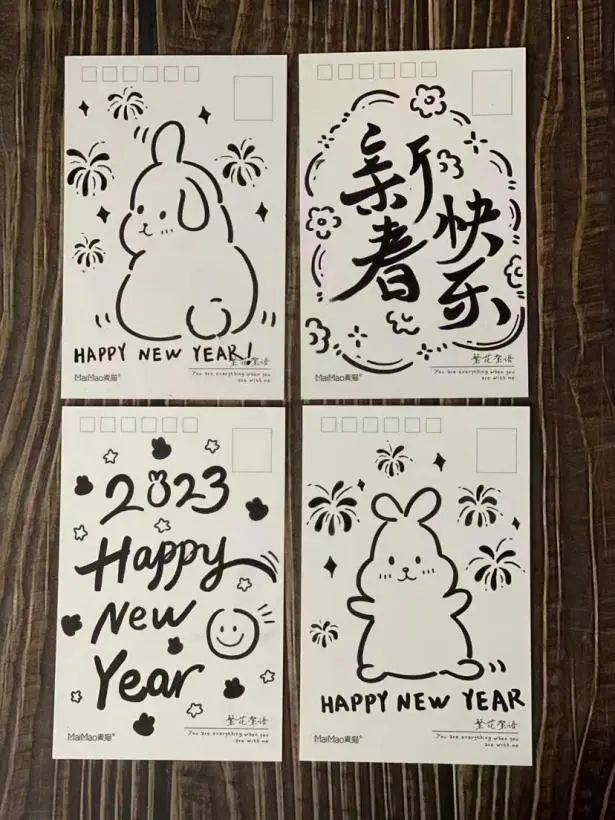 HAPPY NEW YEAR!
MaiMao麦猫®
You are everything when you
are with me
新春
快乐
MaiMao麦猫®
You are everything when you
are with me
2023
Happy
New
Year
MaiMao麦猫®
You are everything when you
are with me
HAPPY NEW YEAR
MaiMao麦猫®
You are everything when you
are with me